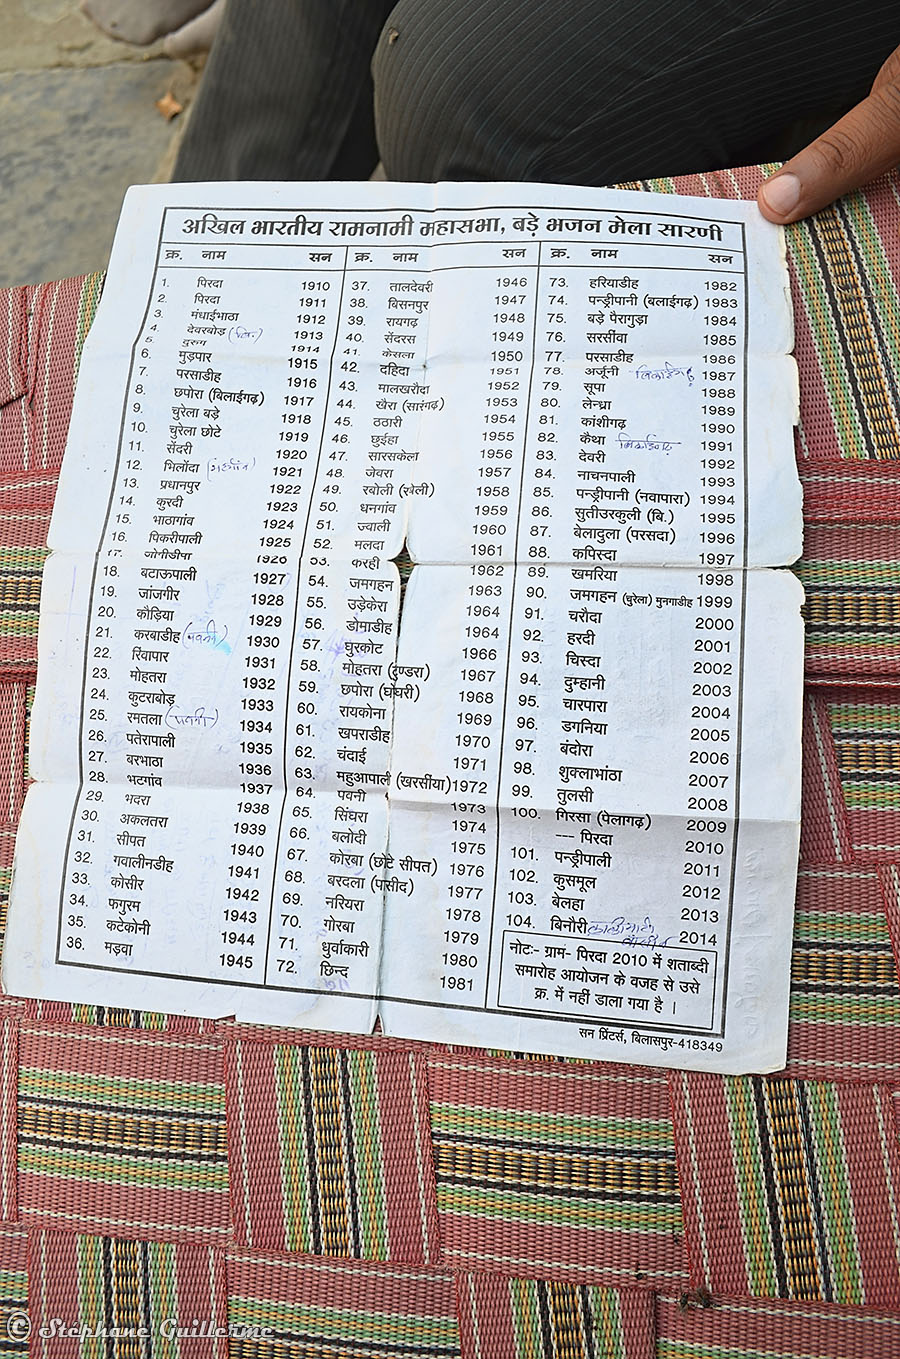 अखिल भारतीय रामनामी महासभा, बड़े भजन मेला सारणी
क्र. नाम सन
1. पिरदा 1910
2. पिरदा 1911
3. मंधाईभाठा 1912
4. देवरबोड़ 1913
5. दुरुग 1914
6. मुड़पार 1915
7. परसाडीह 1916
8. छपोरा (बिलाईगढ़) 1917
9. चुरेला बड़े 1918
10. चुरेला छोटे 1919
11. सेंदरी 1920
12. भिलोंदा 1921
13. प्रधानपुर 1922
14. कुरदी 1923
15. भाठागांव 1924
16. पिकरीपाली 1925
17. जोगीडीपा 1926
18. बटाऊपाली 1927
19. जांजगीर 1928
20. कौड़िया 1929
21. करबाडीह 1930
22. रिंवापार 1931
23. मोहतरा 1932
24. कुटराबोड़ 1933
25. रमतला 1934
26. पतेरापाली 1935
27. बरभाठा 1936
28. भटगांव 1937
29. भदरा 1938
30. अकलतरा 1939
31. सीपत 1940
32. गवालीनडीह 1941
33. कोसीर 1942
34. फगुरम 1943
35. कटेकोनी 1944
36. मड़वा 1945
क्र. नाम सन
37. तालदेवरी 1946
38. बिसनपुर 1947
39. रायगढ़ 1948
40. सेंदरस 1949
41. केसला 1950
42. दहिदा 1951
43. मालखरौदा 1952
44. खैरा (सारंगढ़) 1953
45. ठठारी 1954
46. छुईहा 1955
47. सारसकेला 1956
48. जेवरा 1957
49. रबोली (रबेली) 1958
50. धनगांव 1959
51. ज्वाली 1960
52. मलदा 1961
53. करही 1962
54. जमगहन 1963
55. उड़ेकेरा 1964
56. डोमाडीह 1964
57. घुरकोट 1966
58. मोहतरा (दुण्डरा) 1967
59. छपोरा (घोघरी) 1968
60. रायकोना 1969
61. खपराडीह 1970
62. चंदाई 1971
63. महुआपाली (खरसींया) 1972
64. पवनी 1973
65. सिंघरा 1974
66. बलोदी 1975
67. कोरबा (छोटे सीपत) 1976
68. बरदला (पासीद) 1977
69. नरियरा 1978
70. गोरबा 1979
71. धुर्वाकारी 1980
72. छिन्द 1981
क्र. नाम सन
73. हरियाडीह 1982
74. पन्ड्रीपानी (बलाईगढ़) 1983
75. बड़े पैरागुड़ा 1984
76. सरसींवा 1985
77. परसाडीह 1986
78. अर्जूनी 1987
79. सूपा 1988
80. लेन्ध्रा 1989
81. कांशीगढ़ 1990
82. कैथा 1991
83. देवरी 1992
84. नाचनपाली 1993
85. पन्ड्रीपानी (नवापारा) 1994
86. सुतीउरकुली (बि.) 1995
87. बेलादुला (परसदा) 1996
88. कपिस्दा 1997
89. खमरिया 1998
90. जमगहन (चुरेला) मुनगाडीह 1999
91. चरौदा 2000
92. हरदी 2001
93. चिस्दा 2002
94. दुम्हानी 2003
95. चारपारा 2004
96. डगनिया 2005
97. बंदोरा 2006
98. शुक्लाभांठा 2007
99. तुलसी 2008
100. गिरसा (पेलागढ़) 2009
--- पिरदा 2010
101. पन्ड्रीपाली 2011
102. कुसमूल 2012
103. बेलहा 2013
104. बिनौरी 2014
नोट:- ग्राम- पिरदा 2010 में शताब्दी
समारोह आयोजन के वजह से उसे
क्र. में नहीं डाला गया है ।
सन प्रिंटर्स, बिलासपुर-418349
© Stéphane Guillerme